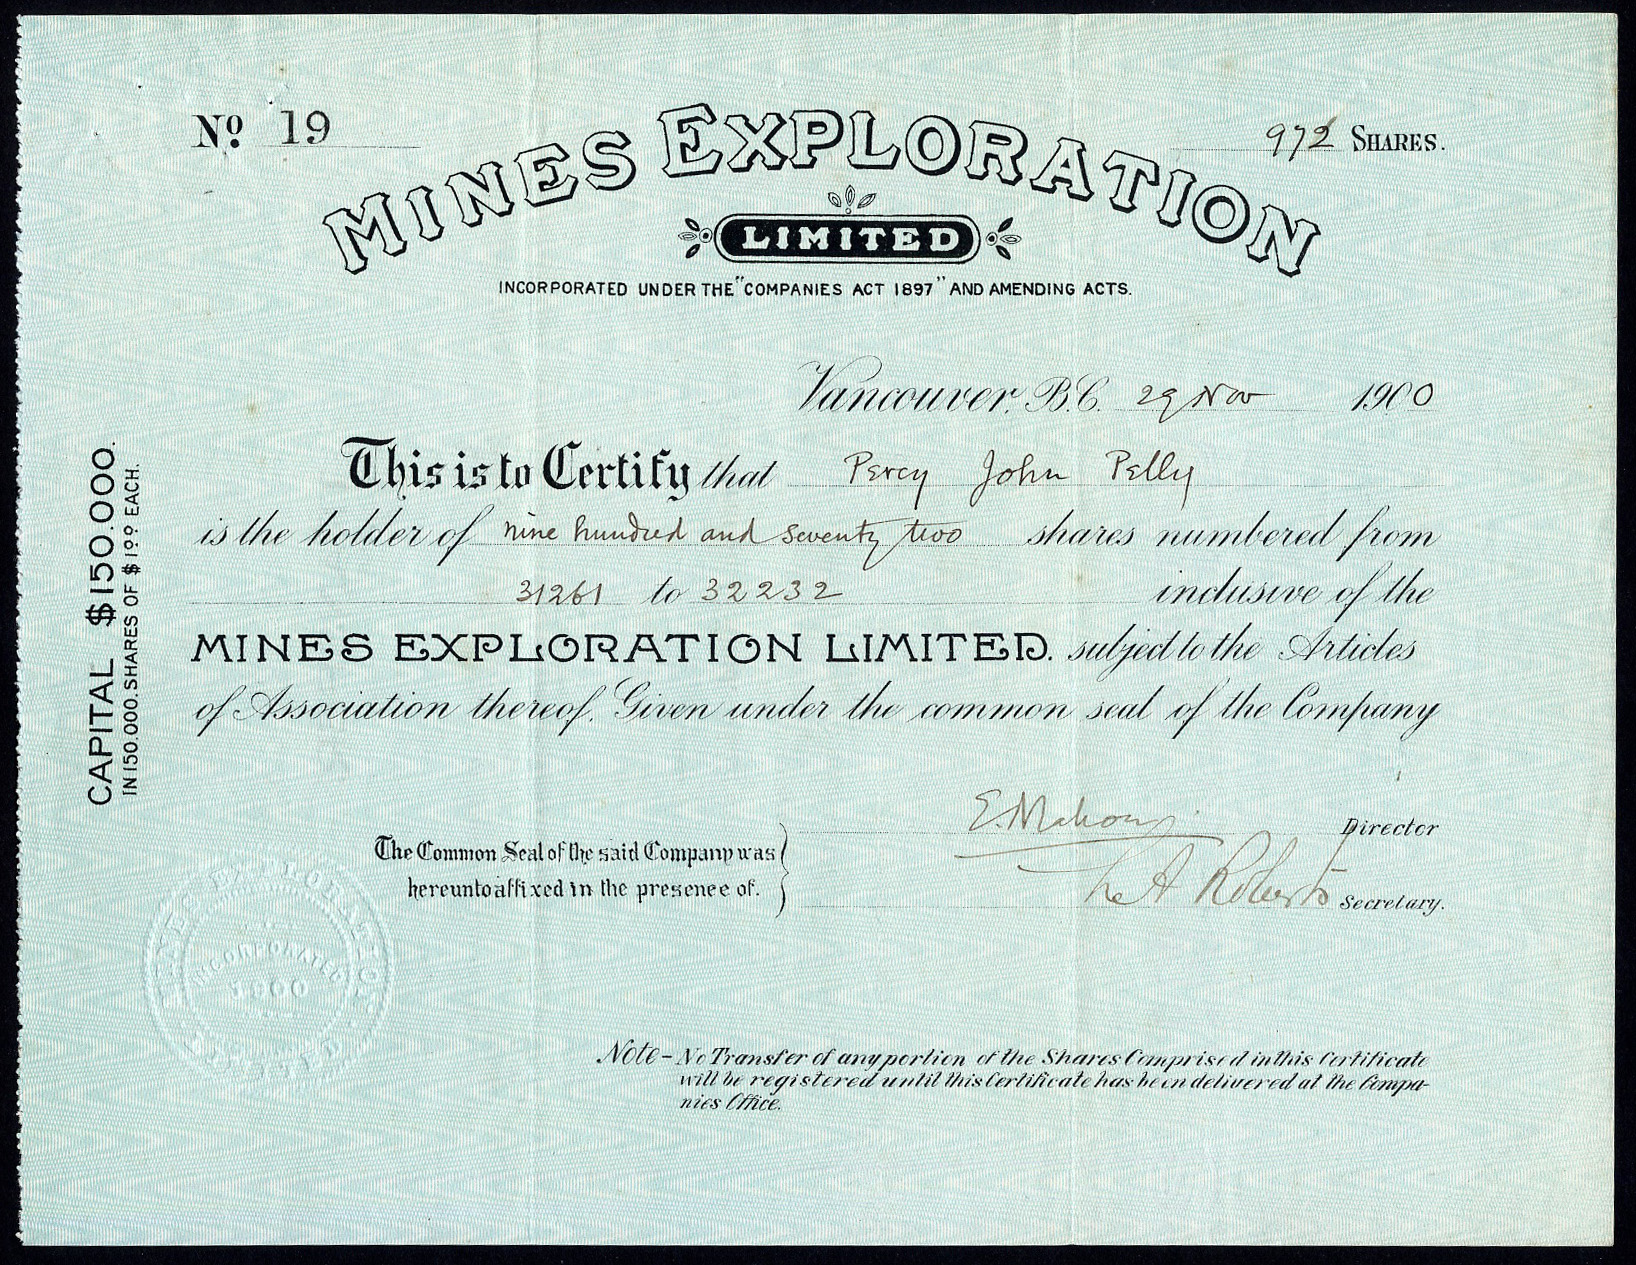 No. 19
972 SHARES.
MINES EXPLORATION
LIMITED
INCORPORATED UNDER THE "COMPANIES ACT 1897" AND AMENDING ACTS.
Vancouver, B.C. 29 Nov 1900
This is to Certify that Percy John Pelly
is the holder of nine hundred and seventy two shares numbered from
31261 to 32232 inclusive of the
MINES EXPLORATION LIMITED. subject to the Articles
of Association thereof. Given under the common seal of the Company
CAPITAL $150.000.
IN 150.000. SHARES OF $1.00 EACH.
E. Mahony Director
The Common Seal of the said Company was
hereunto affixed in the presence of.
A Roberts Secretary.
MINES EXPLORATION LIMITED
INCORPORATED
1900
Note - No Transfer of any portion of the Shares Comprised in this Certificate
will be registered until this Certificate has been delivered at the Compa-
nies Office.